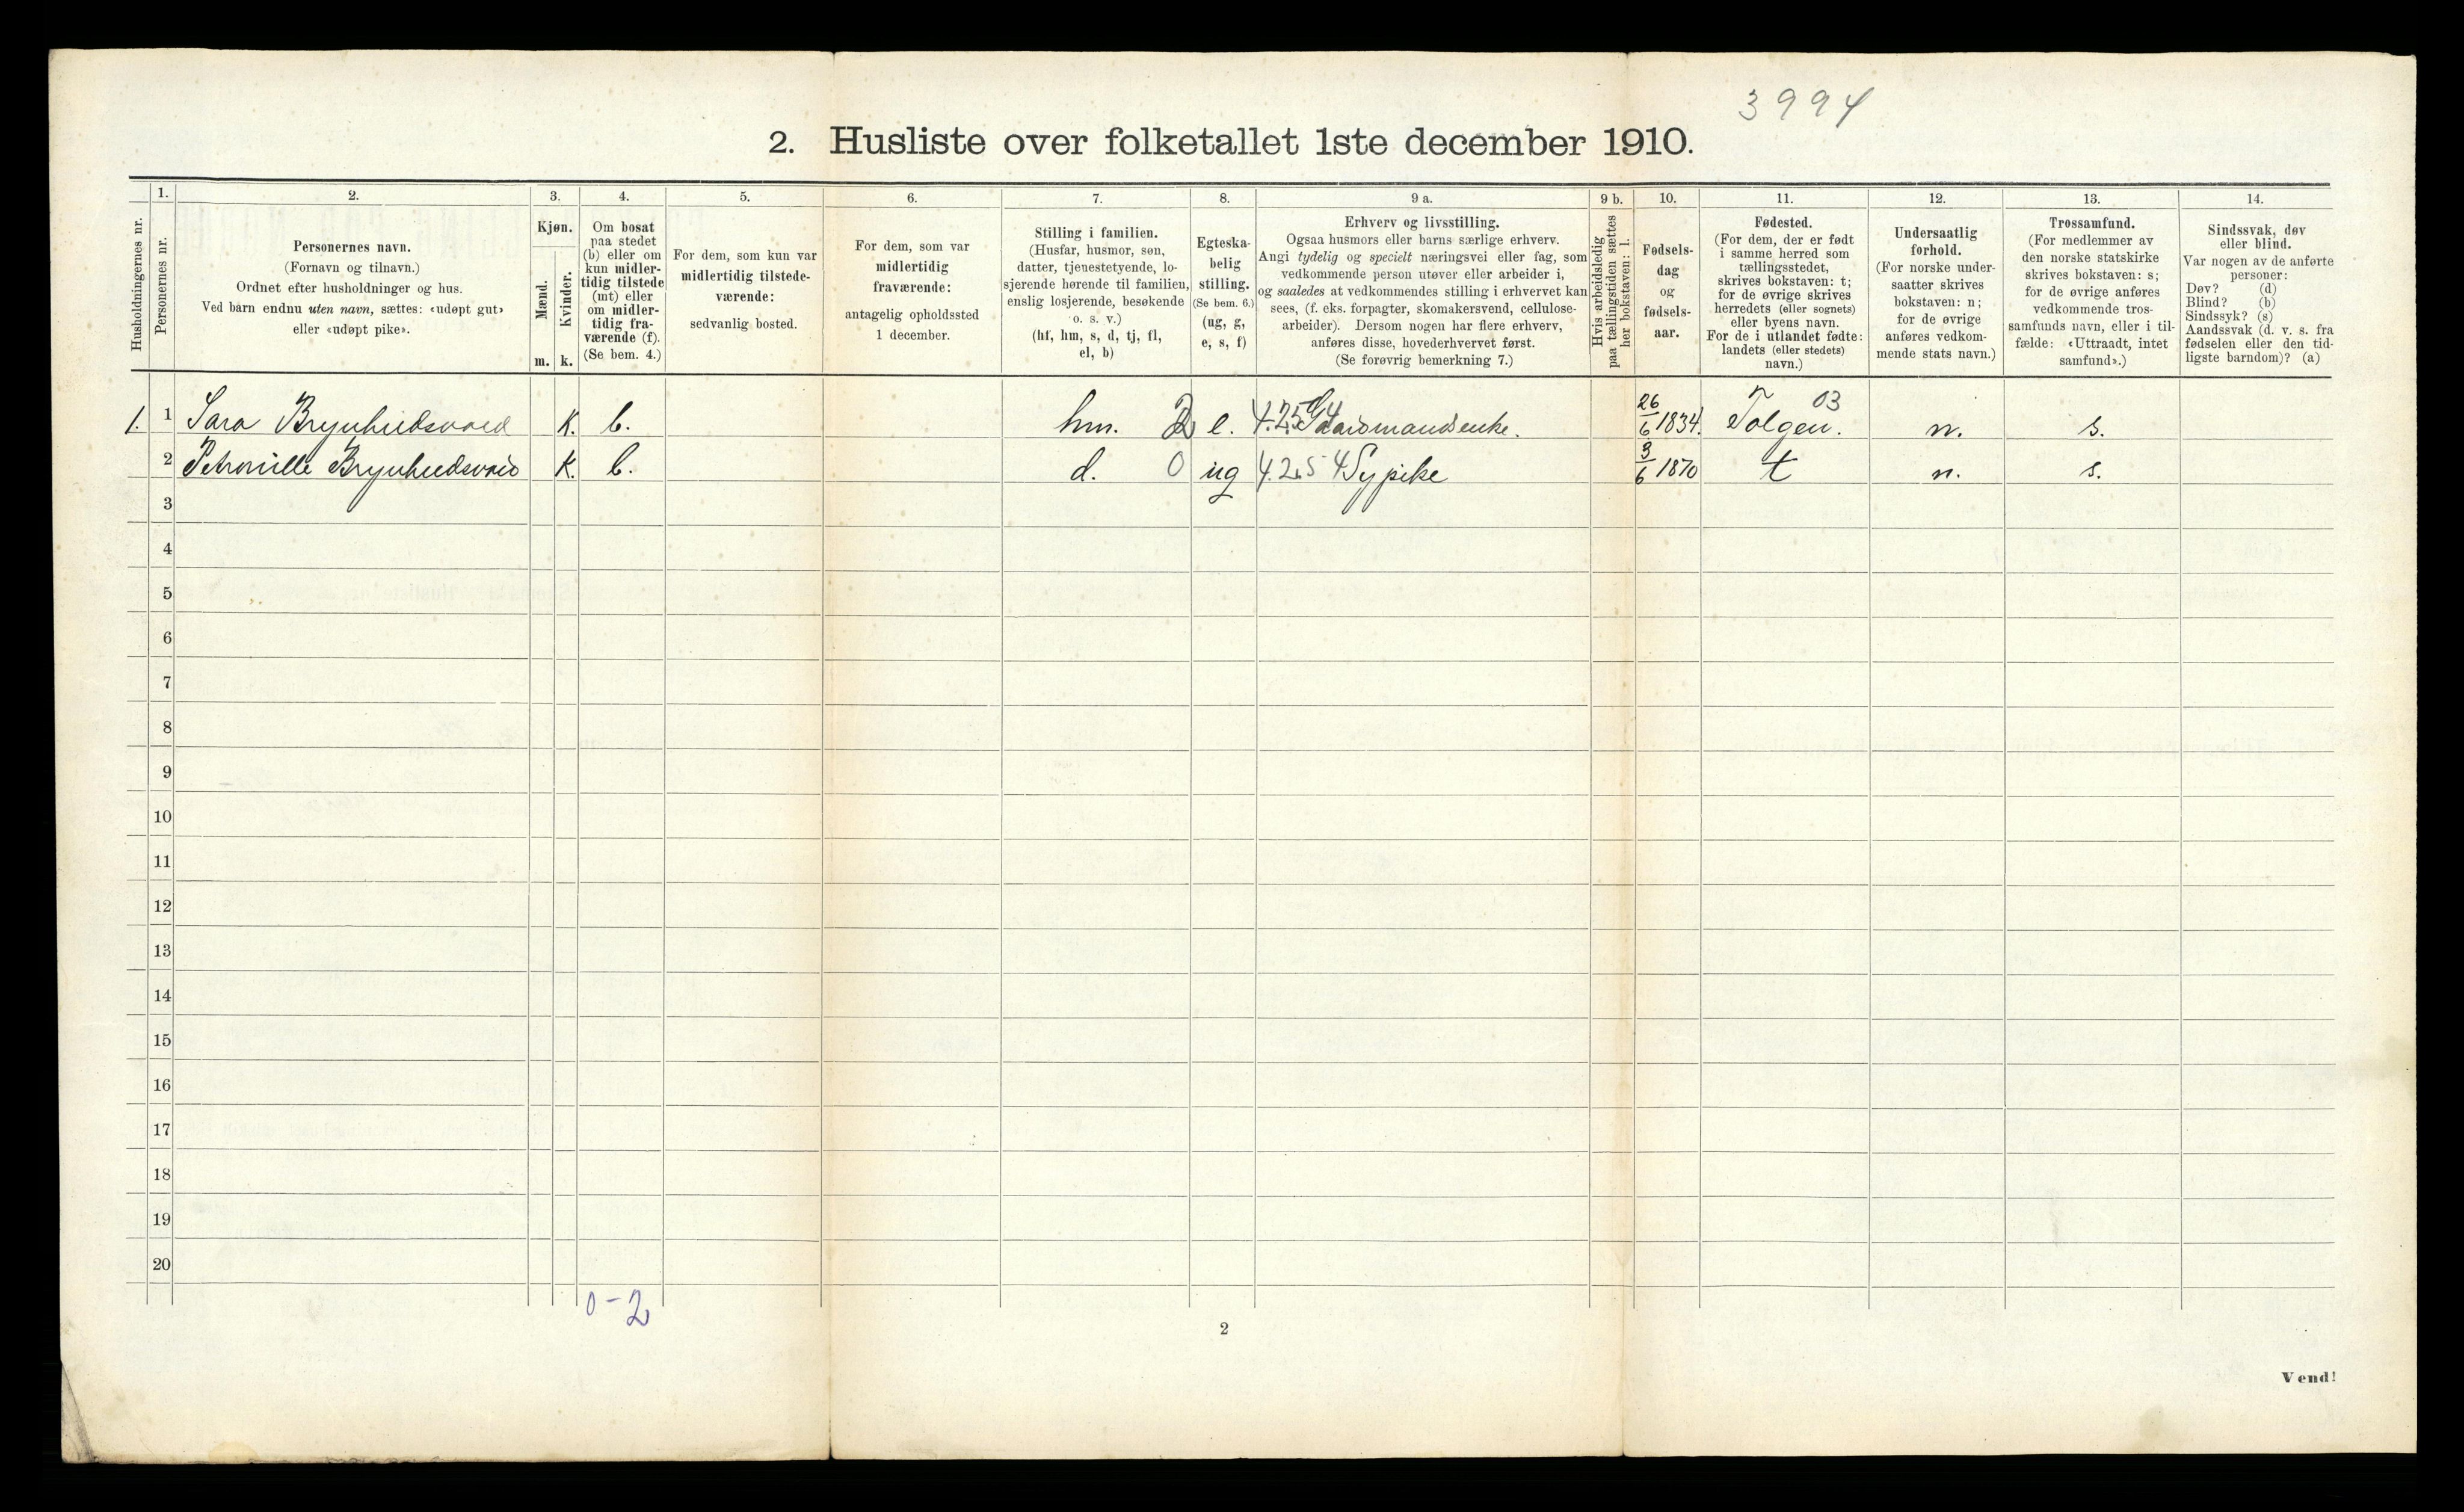 3994
2. Husliste over folketallet 1ste december 1910.
Husholdningernes nr.
1.
Personernes nr.
2.
Personernes navn.
(Fornavn og tilnavn.)
Ordnet efter husholdninger og hus.
Ved barn endnu uten navn, sættes: «udøpt gut»
eller «udøpt pike».
3.
Kjøn.
Mænd.
Kvinder.
m. k.
4.
Om bosat
paa stedet
(b) eller om
kun midler-
tidig tilstede
(mt) eller
om midler-
tidig fra-
værende (f).
(Se bem. 4.)
5.
For dem, som kun var
midlertidig tilstede-
værende:
sedvanlig bosted.
6.
For dem, som var
midlertidig
fraværende:
antagelig opholdssted
1 december.
7.
Stilling i familien.
(Husfar, husmor, søn,
datter, tjenestetyende, lo-
sjerende hørende til familien,
enslig losjerende, besøkende
o. s. v.)
(hf, hm, s, d, tj, fl,
el, b)
8.
Egteska-
belig
stilling.
(Se bem. 6.)
(ug, g,
e, s, f)
9 a.
Erhverv og livsstilling.
Ogsaa husmors eller barns særlige erhverv.
Angi tydelig og specielt næringsvei eller fag, som
vedkommende person utøver eller arbeider i,
og saaledes at vedkommendes stilling i erhvervet kan
sees, (f. eks. forpagter, skomakersvend, cellulose-
arbeider). Dersom nogen har flere erhverv,
anføres disse, hovederhvervet først.
(Se forøvrig bemerkning 7.)
9 b.
Hvis arbeidsledig
paa tællingstiden sættes
her bokstaven: l.
10.
Fødsels-
dag
og
fødsels-
aar.
11.
Fødested.
(For dem, der er født
i samme herred som
tællingsstedet,
skrives bokstaven: t;
for de øvrige skrives
herredets (eller sognets)
eller byens navn.
For de i utlandet fødte:
landets (eller stedets)
navn.)
12.
Undersaatlig
forhold.
(For norske under-
saatter skrives
bokstaven: n;
for de øvrige
anføres vedkom-
mende stats navn.)
13.
Trossamfund.
(For medlemmer av
den norske statskirke
skrives bokstaven: s;
for de øvrige anføres
vedkommende tros-
samfunds navn, eller i til-
fælde: «Uttraadt, intet
samfund».)
14.
Sindssvak, døv
eller blind.
Var nogen av de anførte
personer:
Døv? (d)
Blind? (b)
Sindssyk? (s)
Aandssvak (d. v. s. fra
fødselen eller den tid-
ligste barndom)? (a)
1. 1 Sara Brynhildsvold K. b. hm. 2 e. 4.25 4 Gaardmandsenke. 26/6 1834. Tolgen. 03 n. s.
2 Petronille Brynhildsvold K. b. d. 0 ug 4.25 4 Sypike 3/6 1870 t n. s.
3
4
5
6
7
8
9
10
11
12
13
14
15
16
17
18
19
20
0-2
2
Vend!